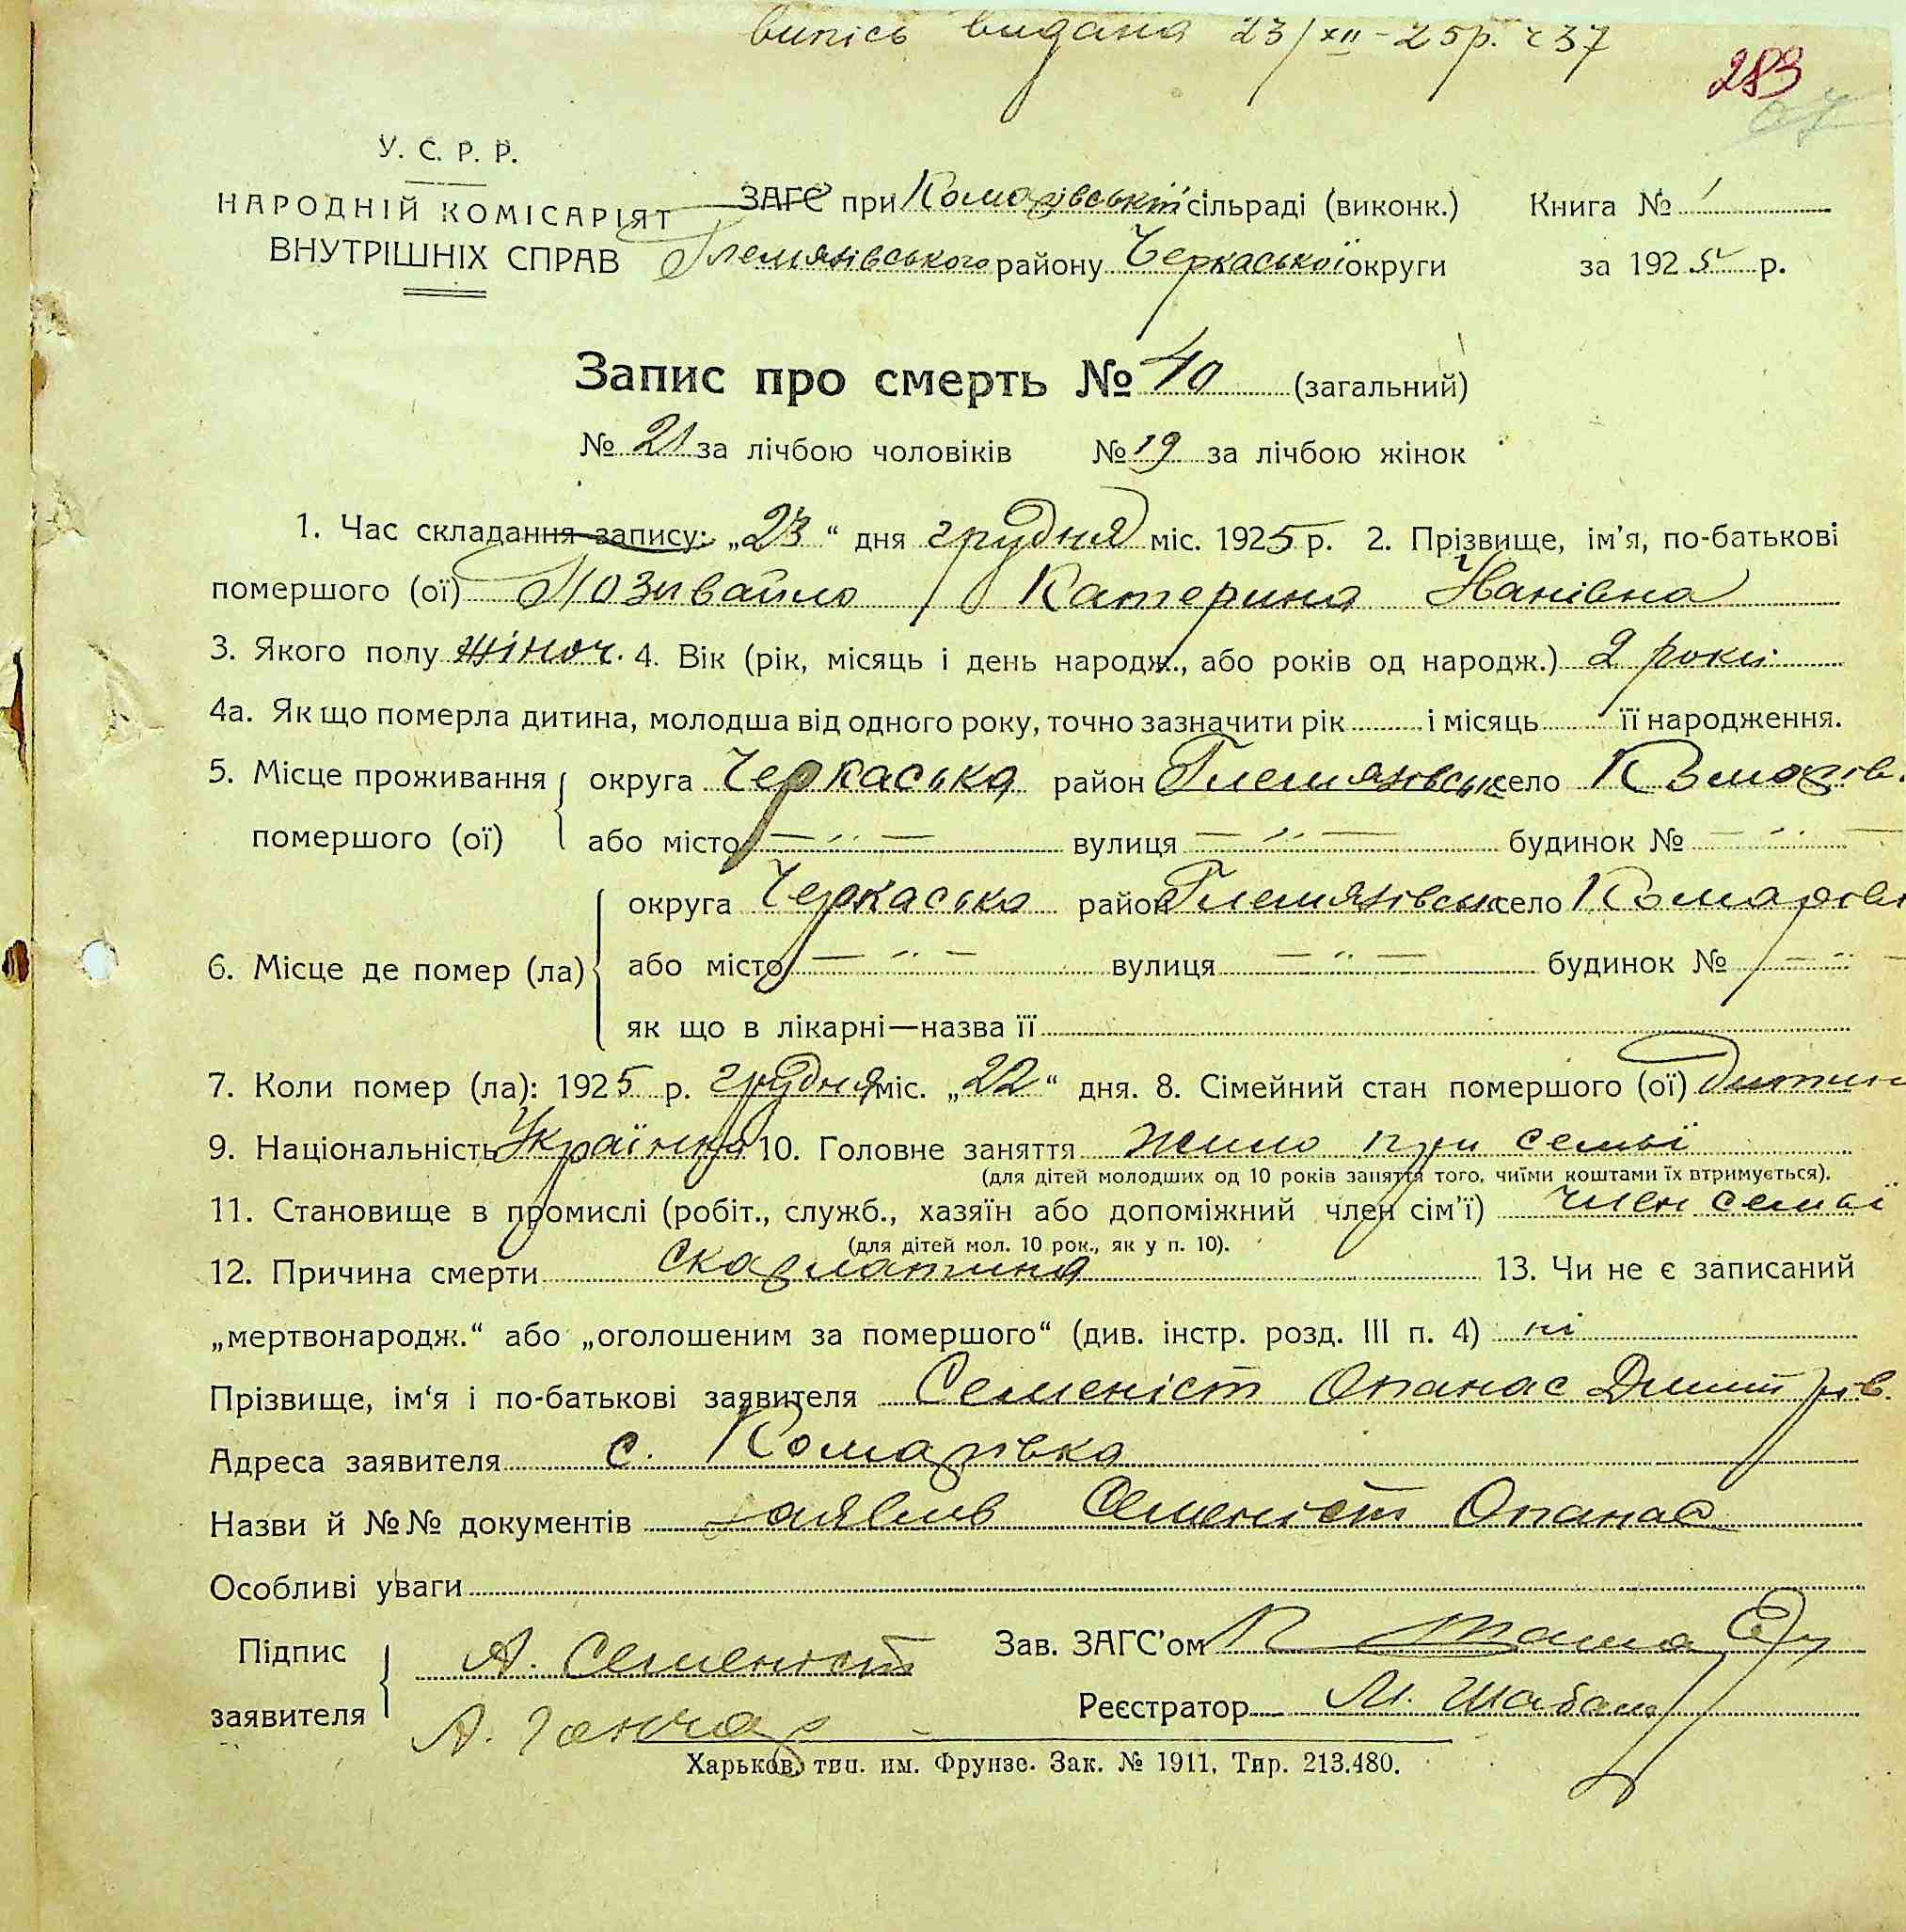 випісь видана 23/XII-25р. ч 37
283
У. С. Р. Р.
НАРОДНІЙ КОМІСАРІЯТ
ВНУТРІШНІХ СПРАВ
ЗАГС при Комарівській сільраді (виконк.) Книга № 1
Гельмязівського району Черкаської округи за 1925 р.
Запис про смерть № 40 (загальний)
№ 21 за лічбою чоловіків № 19 за лічбою жінок
1. Час складання запису: „23“ дня грудня міс. 1925 р. 2. Прізвище, ім'я, по-батькові
помершого (ої) Позивайло Катерина Іванівна
3. Якого полу жіноч. 4. Вік (рік, місяць і день народж., або років од народж.) 2 роки
4а. Як що померла дитина, молодша від одного року, точно зазначити рік і місяць її народження.
5. Місце проживання округа Черкаська район Гельмязівськ село Комарів.
помершого (ої) або місто — " — вулиця — " — будинок № — " —
округа Черкаська район Гельмязівськ село Комарівк
6. Місце де помер (ла) або місто — " — вулиця — " — будинок № — " —
як що в лікарні—назва її
7. Коли помер (ла): 1925 р. грудня міс. „22“ дня. 8. Сімейний стан помершого (ої) дитин
9. Національність Українка 10. Головне заняття жило при семьї
(для дітей молодших од 10 років заняття того, чиїми коштами їх втримується).
11. Становище в промислі (робіт., служб., хазяїн або допоміжний член сім'ї) член семьї
(для дітей мол. 10 рок., як у п. 10).
12. Причина смерти скарлатина 13. Чи не є записаний
„мертвонародж.“ або „оголошеним за помершого“ (див. інстр. розд. III п. 4) ні
Прізвище, ім'я і по-батькові заявителя Семеніст Опанас Дмитров.
Адреса заявителя с. Комарівка
Назви й №№ документів заявив Семеніст Опанас
Особливі уваги
Підпис А. Семеніст Зав. ЗАГС'ом
заявителя А. Гончар Реєстратор М. Шабаш
Харьков, тип. им. Фрунзе. Зак. № 1911, Тир. 213.480.